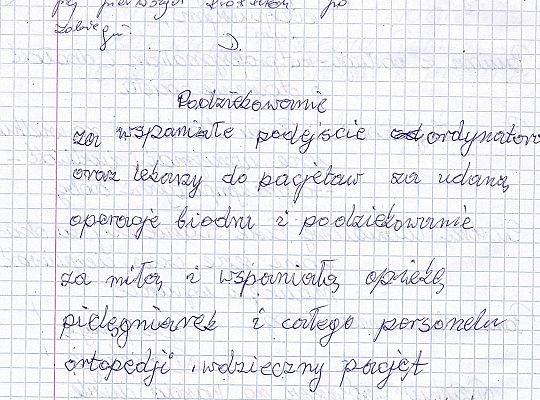 po
zabiegu.
D.
Podziękowanie
za wspaniałe podejście ordynatora
oraz lekarzy do pacjętaw za udaną
operacje biodra i podziękowanie
za miłą i wspaniałą opiekę
pielęgniarek i całego personelu
ortopedji wdzieczny pacjęt